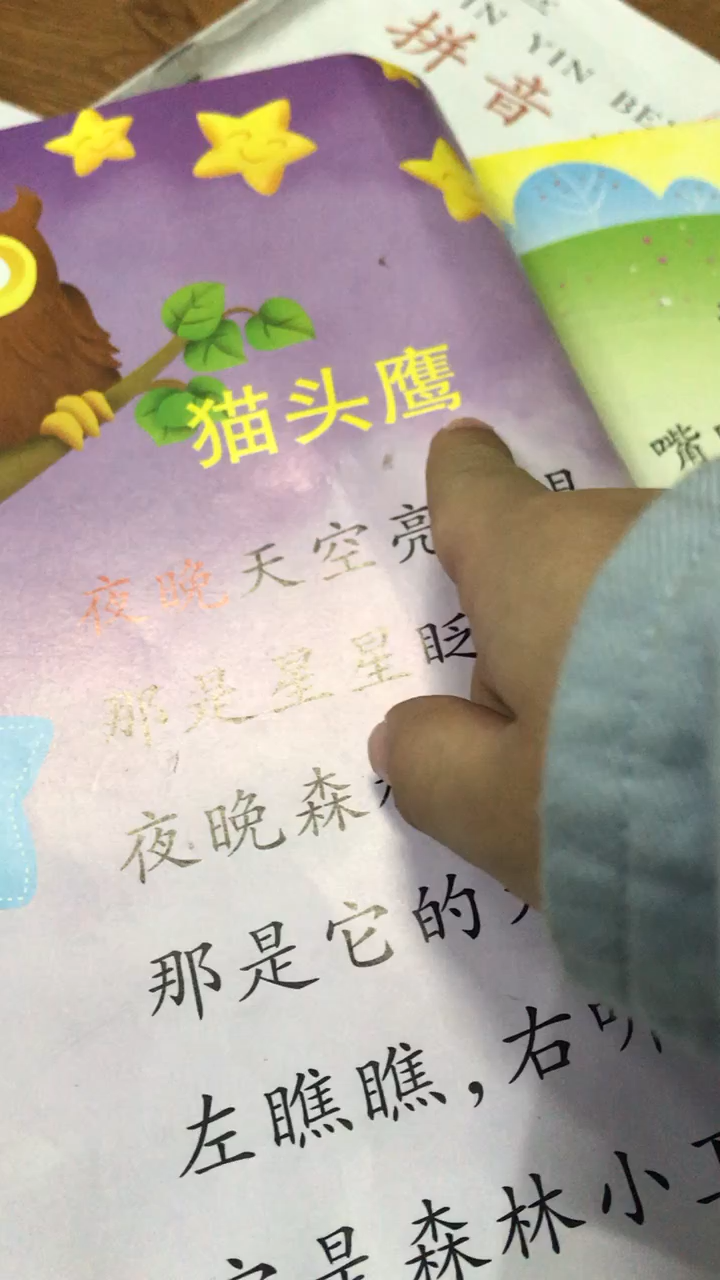 IN YIN BE
拼音
猫头鹰
嘴
夜晚天空亮
那是星星眨
夜晚森
那是它的
左瞧瞧,右
是森林小